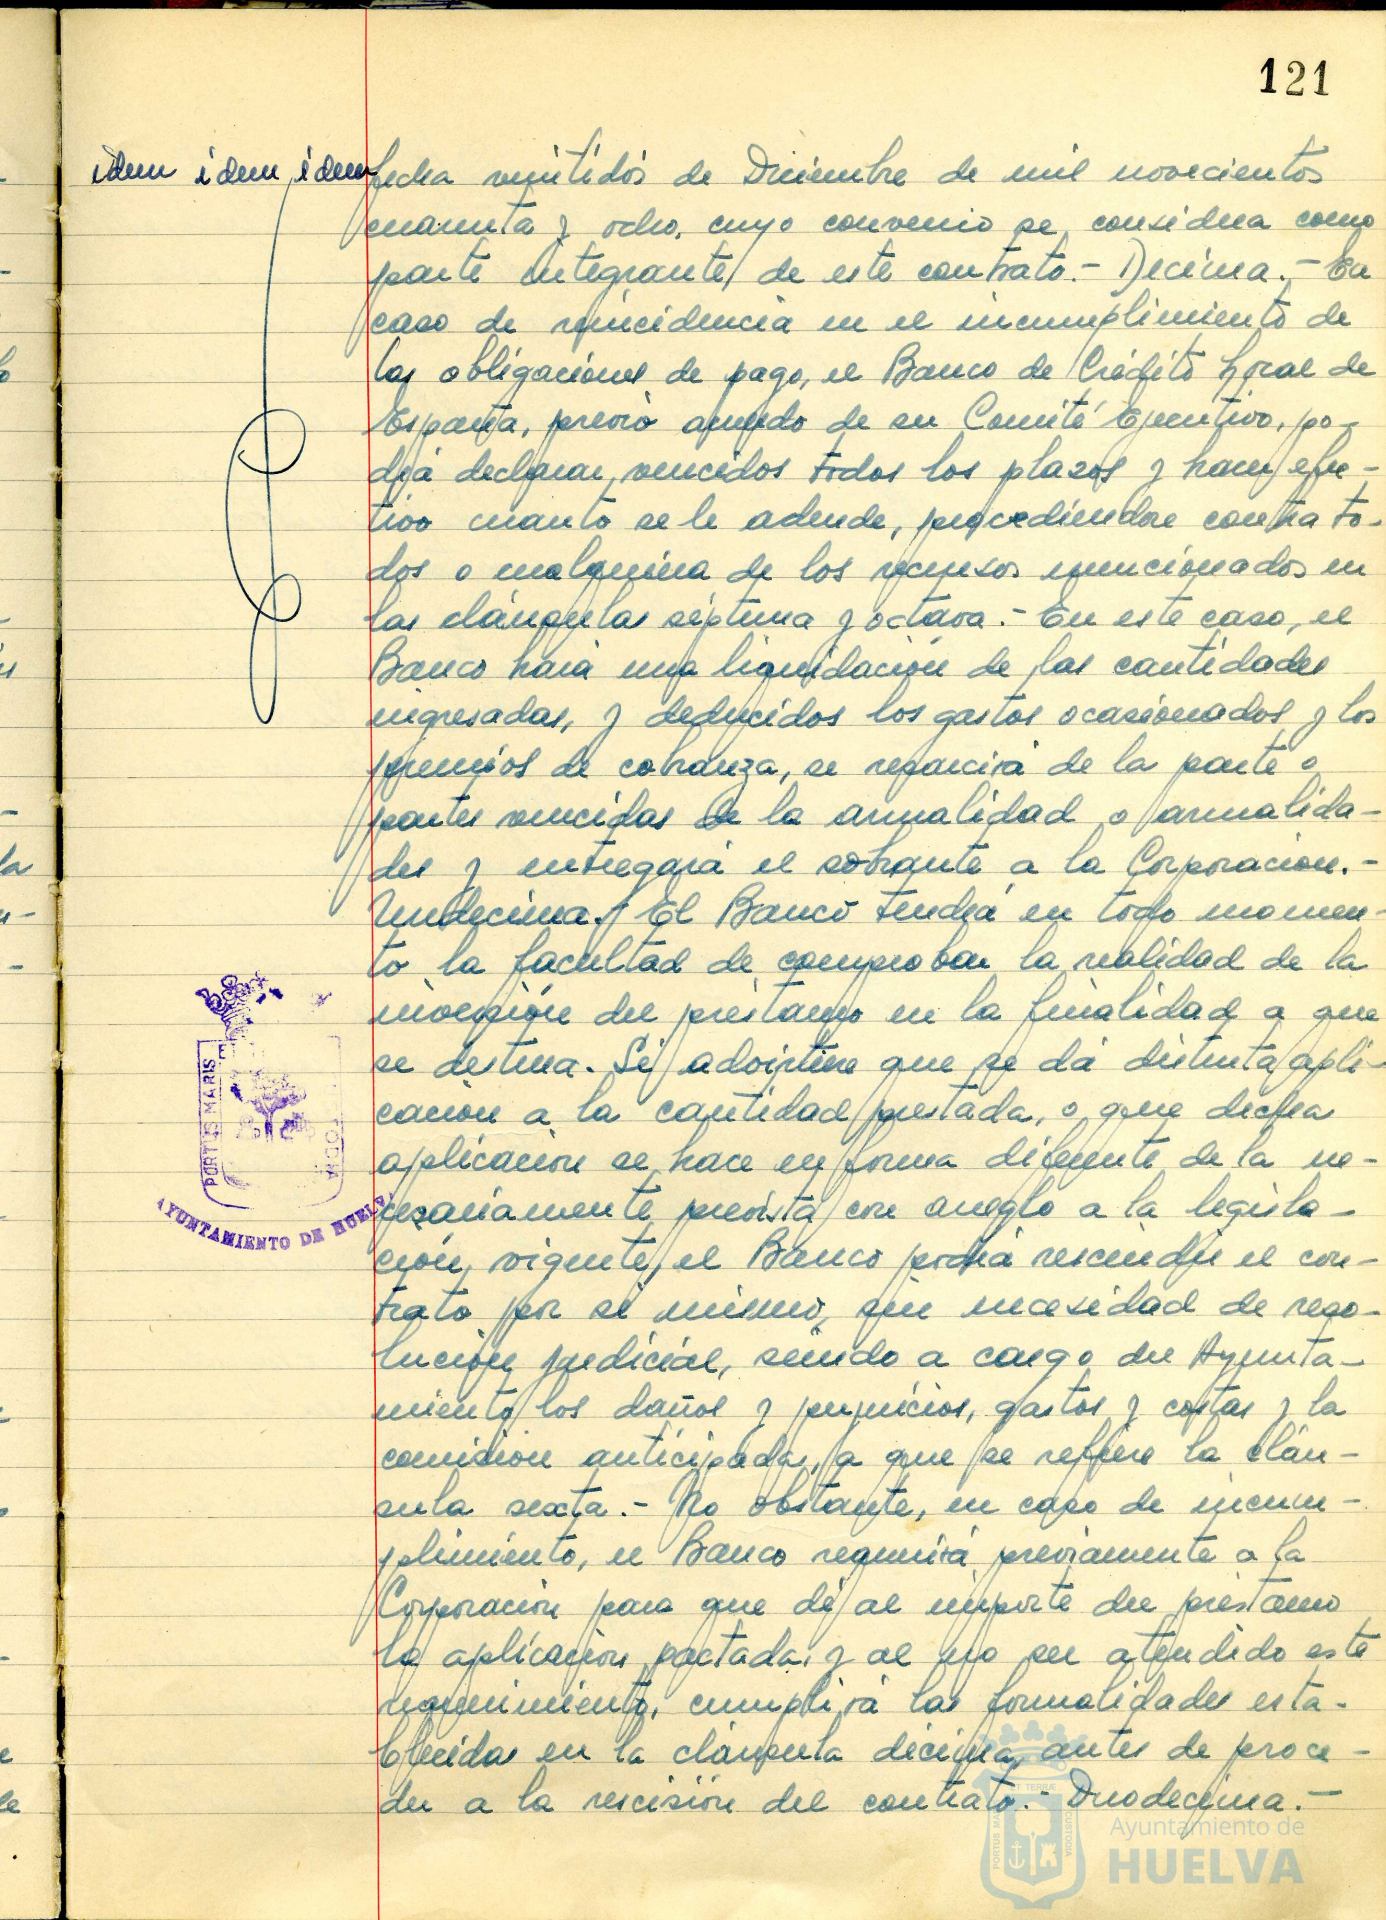 121
idem idem idem
fecha veintidós de Diciembre de mil novecientos
cuarenta y ocho, cuyo convenio se considera como
parte integrante de este contrato.- Decima.- En
caso de reincidencia en el incumplimiento de
las obligaciones de pago, el Banco de Crédito Local de
España, previo acuerdo de su Comité Ejecutivo, po-
drá declarar vencidos todos los plazos y hacer efec-
tivo cuanto se le adeude, procediendose contra to-
dos o cualquiera de los recursos mencionados en
las cláusulas séptima y octava.- En este caso, el
Banco hará una liquidación de las cantidades
ingresadas, y deducidos los gastos ocasionados y los
premios de cobranza, se resarcirá de la parte o
partes vencidas de la anualidad o anualida-
des y entregará el sobrante a la Corporación.-
Undecima.- El Banco tendrá en todo momen-
to la facultad de comprobar la realidad de la
inversión del préstamo en la finalidad a que
se destina. Si advirtiere que se dá distinta apli-
cación a la cantidad prestada, o que dicha
aplicación se hace en forma diferente de la ne-
cesariamente prevista con arreglo a la legisla-
ción vigente, el Banco podrá rescindir el con-
trato por si mismo, sin necesidad de reso-
lución judicial, siendo a cargo del Ayunta-
miento los daños y perjuicios, gastos y costas y la
comisión anticipada, a que se refiere la cláu-
sula sexta.- No obstante, en caso de incum-
plimiento, el Banco requerirá previamente a la
Corporación para que dé al importe del préstamo
la aplicación pactada, y al no ser atendido este
requerimiento, cumplirá las formalidades esta-
blecidas en la cláusula décima, antes de proce-
der a la rescisión del contrato.- Duodecima.-
PORTUS MARIS
AYUNTAMIENTO DE HUELVA
PORTUS MARIS ET TERRÆ CUSTODIA
Ayuntamiento de
HUELVA